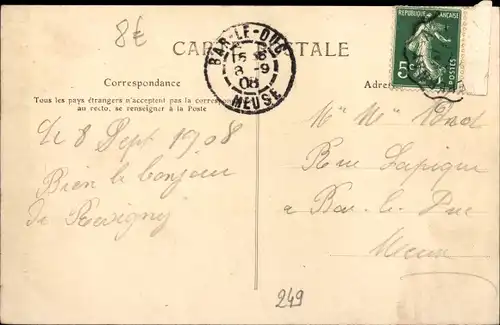 8€
CARTE POSTALE
BAR-LE-DUC
8 -9
08
MEUSE
REPUBLIQUE FRANÇAISE
5c
POSTES
Correspondance
Tous les pays étrangers n'acceptent pas la corresp
au recto, se renseigner à la Poste
Adre
le 8 Sept 1908
Bien le bonjour
de Revigny
Rue Lapique
a Bar le Duc
Meuse
249